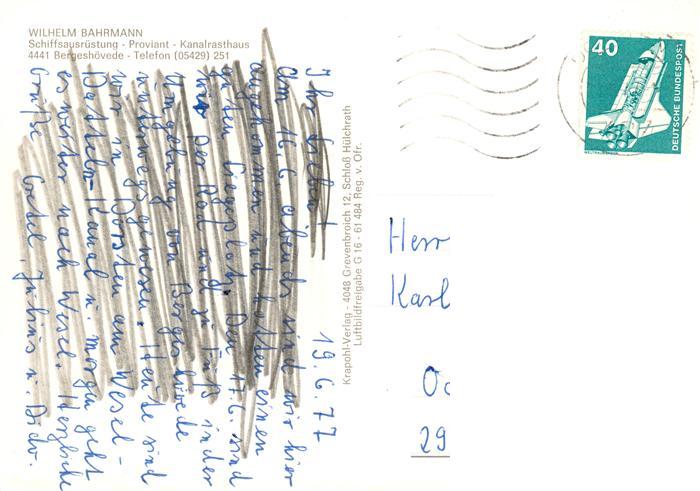 WILHELM BAHRMANN
Schiffsausrüstung - Proviant - Kanalrasthaus
4441 Bergeshövede - Telefon (05429) 251
19.6.77
Am 16.6. abends sind wir hier
angekommen und hatten einen
guten Liegeplatz. Den 17.6. sind
der Rad und zu Fuß in der
Umgebung von Bergeshövede
unterwegs gewesen. Heute sind
wir in Dorsten am Wesel-
Datteln-Kanal u. morgen geht
es weiter nach Wesel. Herzliche
Grüße Gretel, Julius u.
Krapohl-Verlag - 4048 Grevenbroich 12, Schloß Hülchrath
Luftbildfreigabe G 16 - 61 484 Reg. v. Ofr.
40
DEUTSCHE BUNDESPOST
Herr
Karl
29